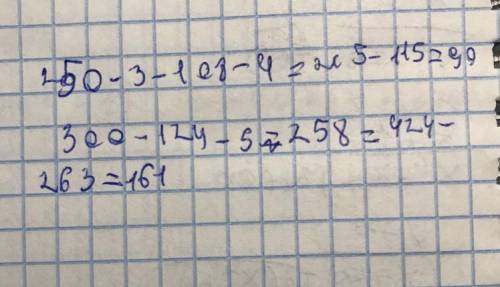 250-3-108-4=205-115=90
300-124-5=258=424-
263=161